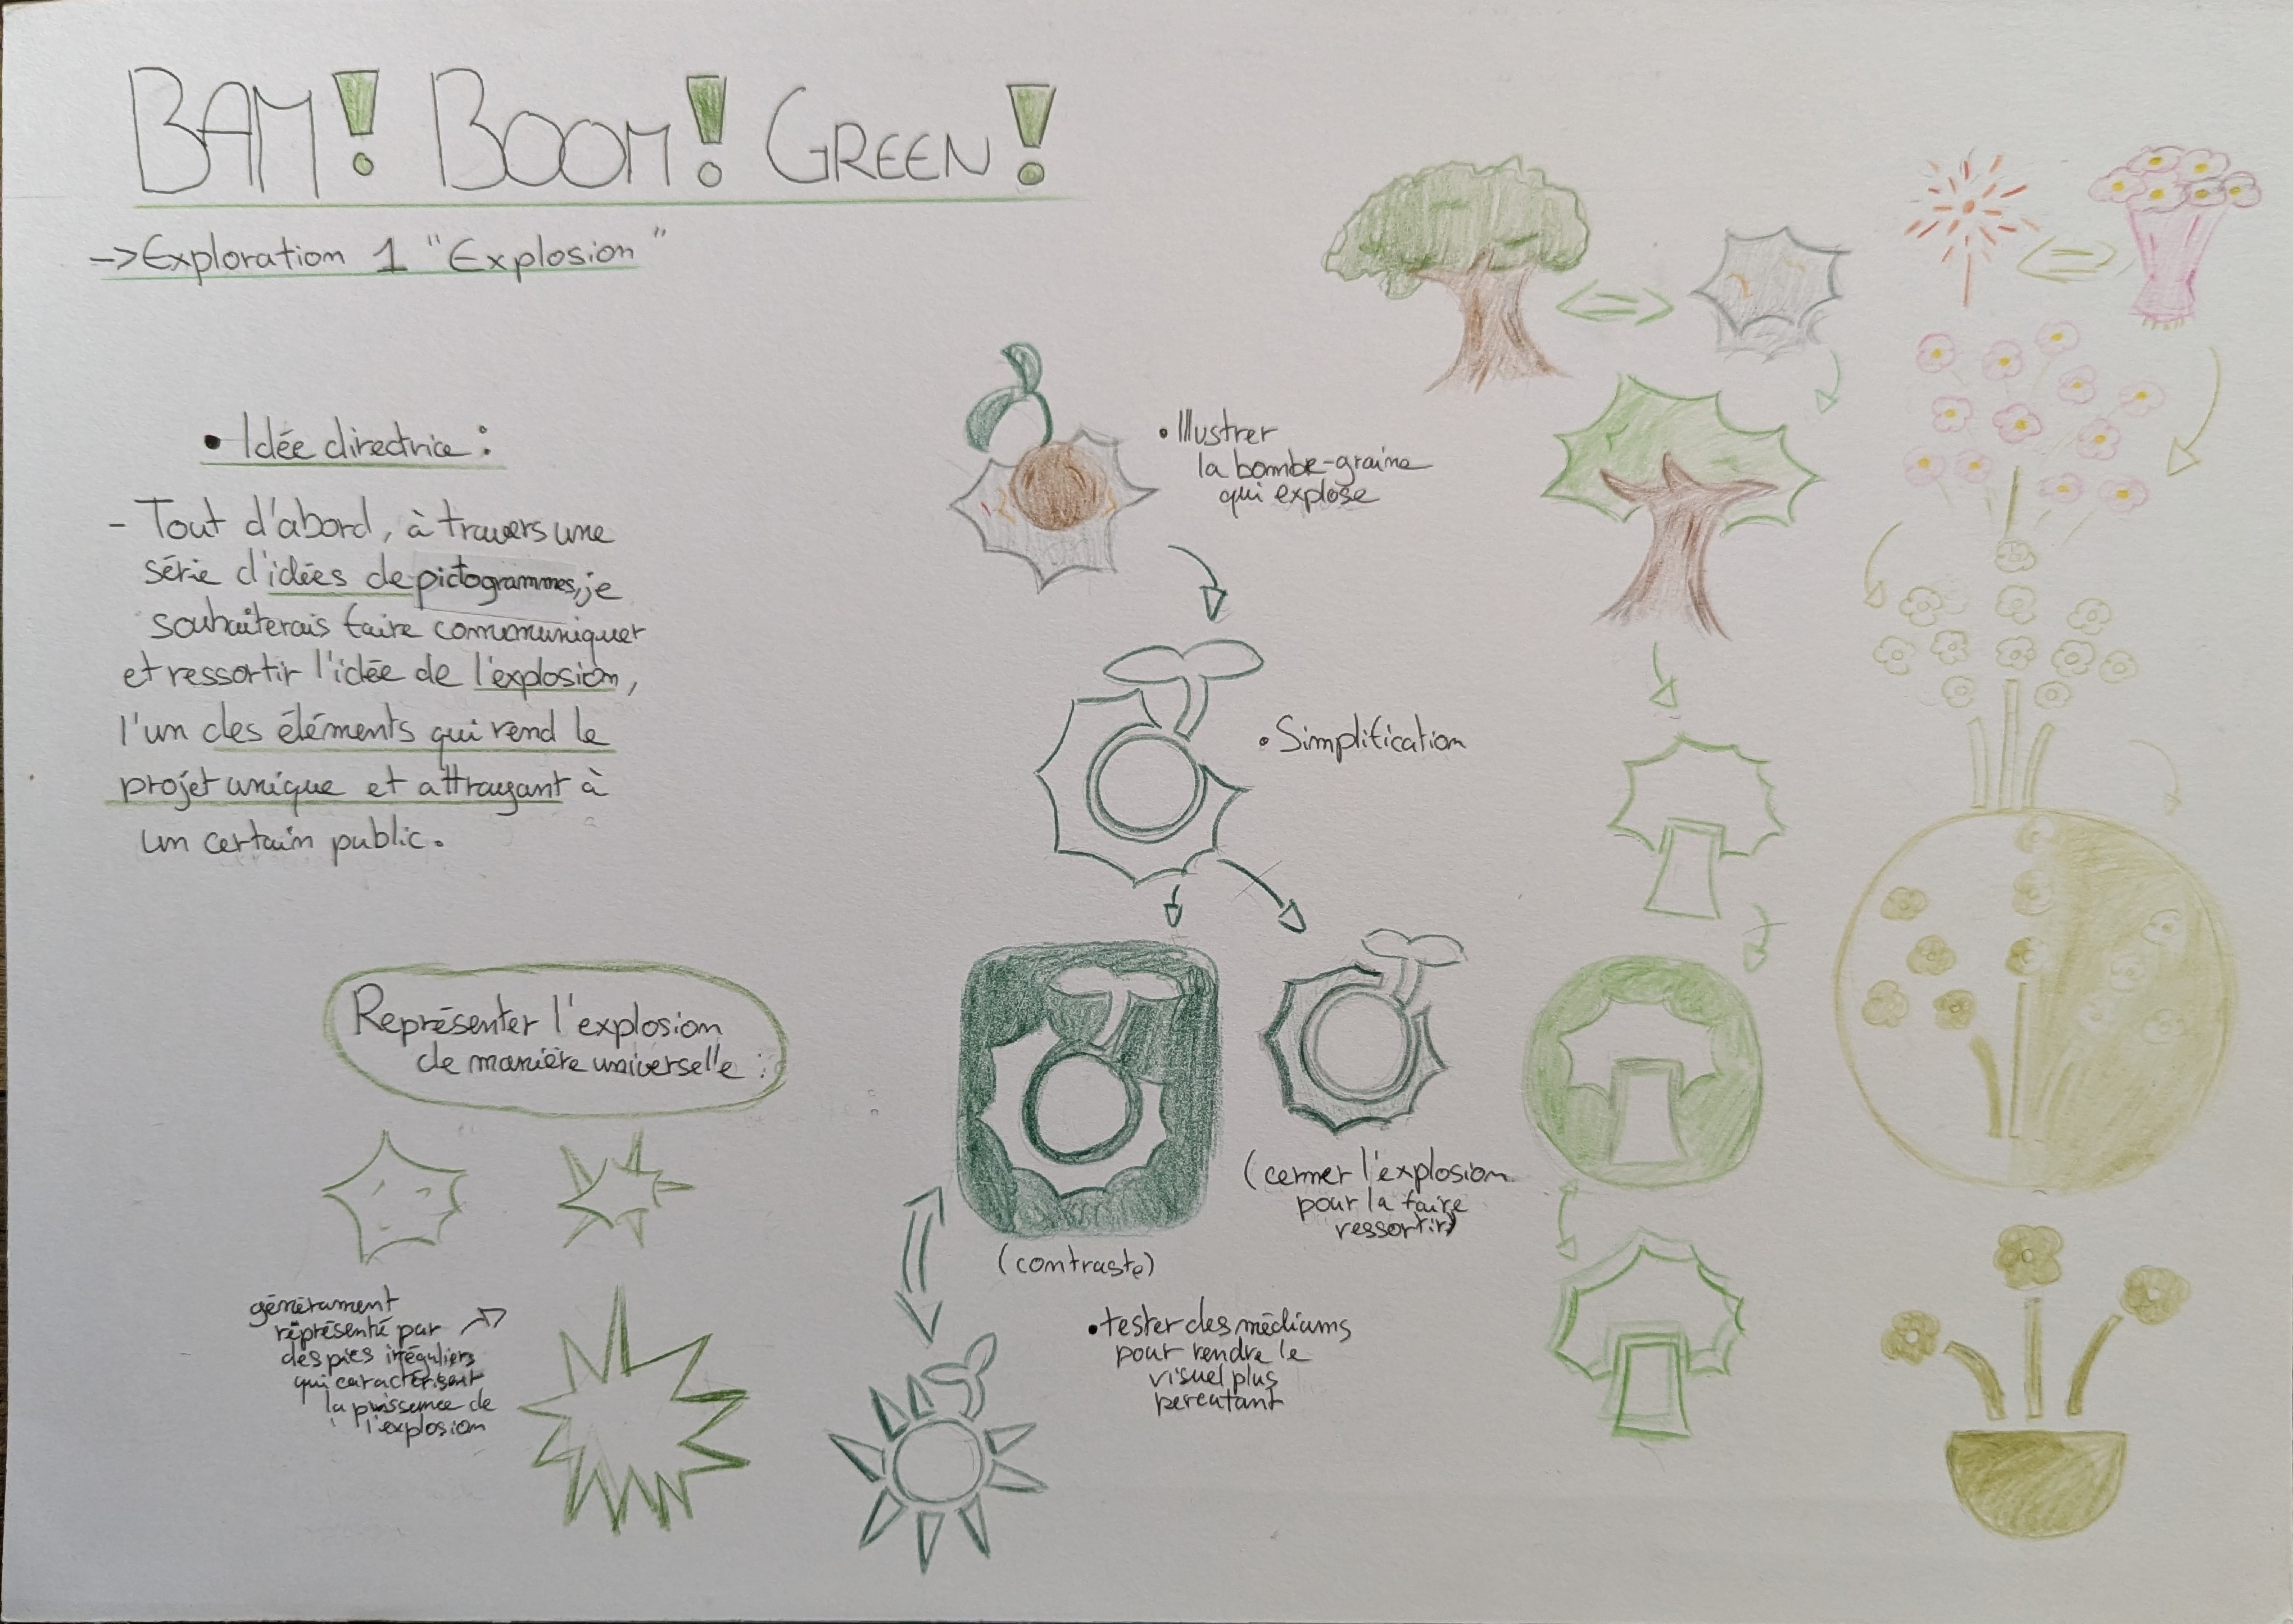 BAM! BOOM! GREEN!
->Exploration 1 "Explosion"
• Idée directrice :
- Tout d'abord, à travers une
série d'idées de pictogrammes, je
souhaiterais faire communiquer
et ressortir l'idée de l'explosion,
l'un des éléments qui rend le
projet unique et attrayant à
un certain public.
Représenter l'explosion
de manière universelle :
générament
réprésenté par
des pics irréguliers
qui caractérisent
la puissance de
l'explosion
• Illustrer
la bombe-graine
qui explose
• Simplification
(contraste)
(cerner l'explosion
pour la faire
ressortir)
• tester des médiums
pour rendre le
visuel plus
percutant